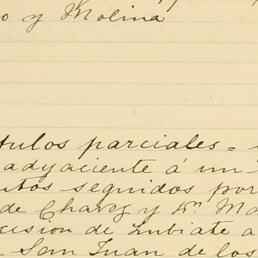 o y Molina
tulos parciales =
adyaciente á un
utos seguidos por
de Chavez y Dn. Ma
cision de Lutiate a
San Juan de los